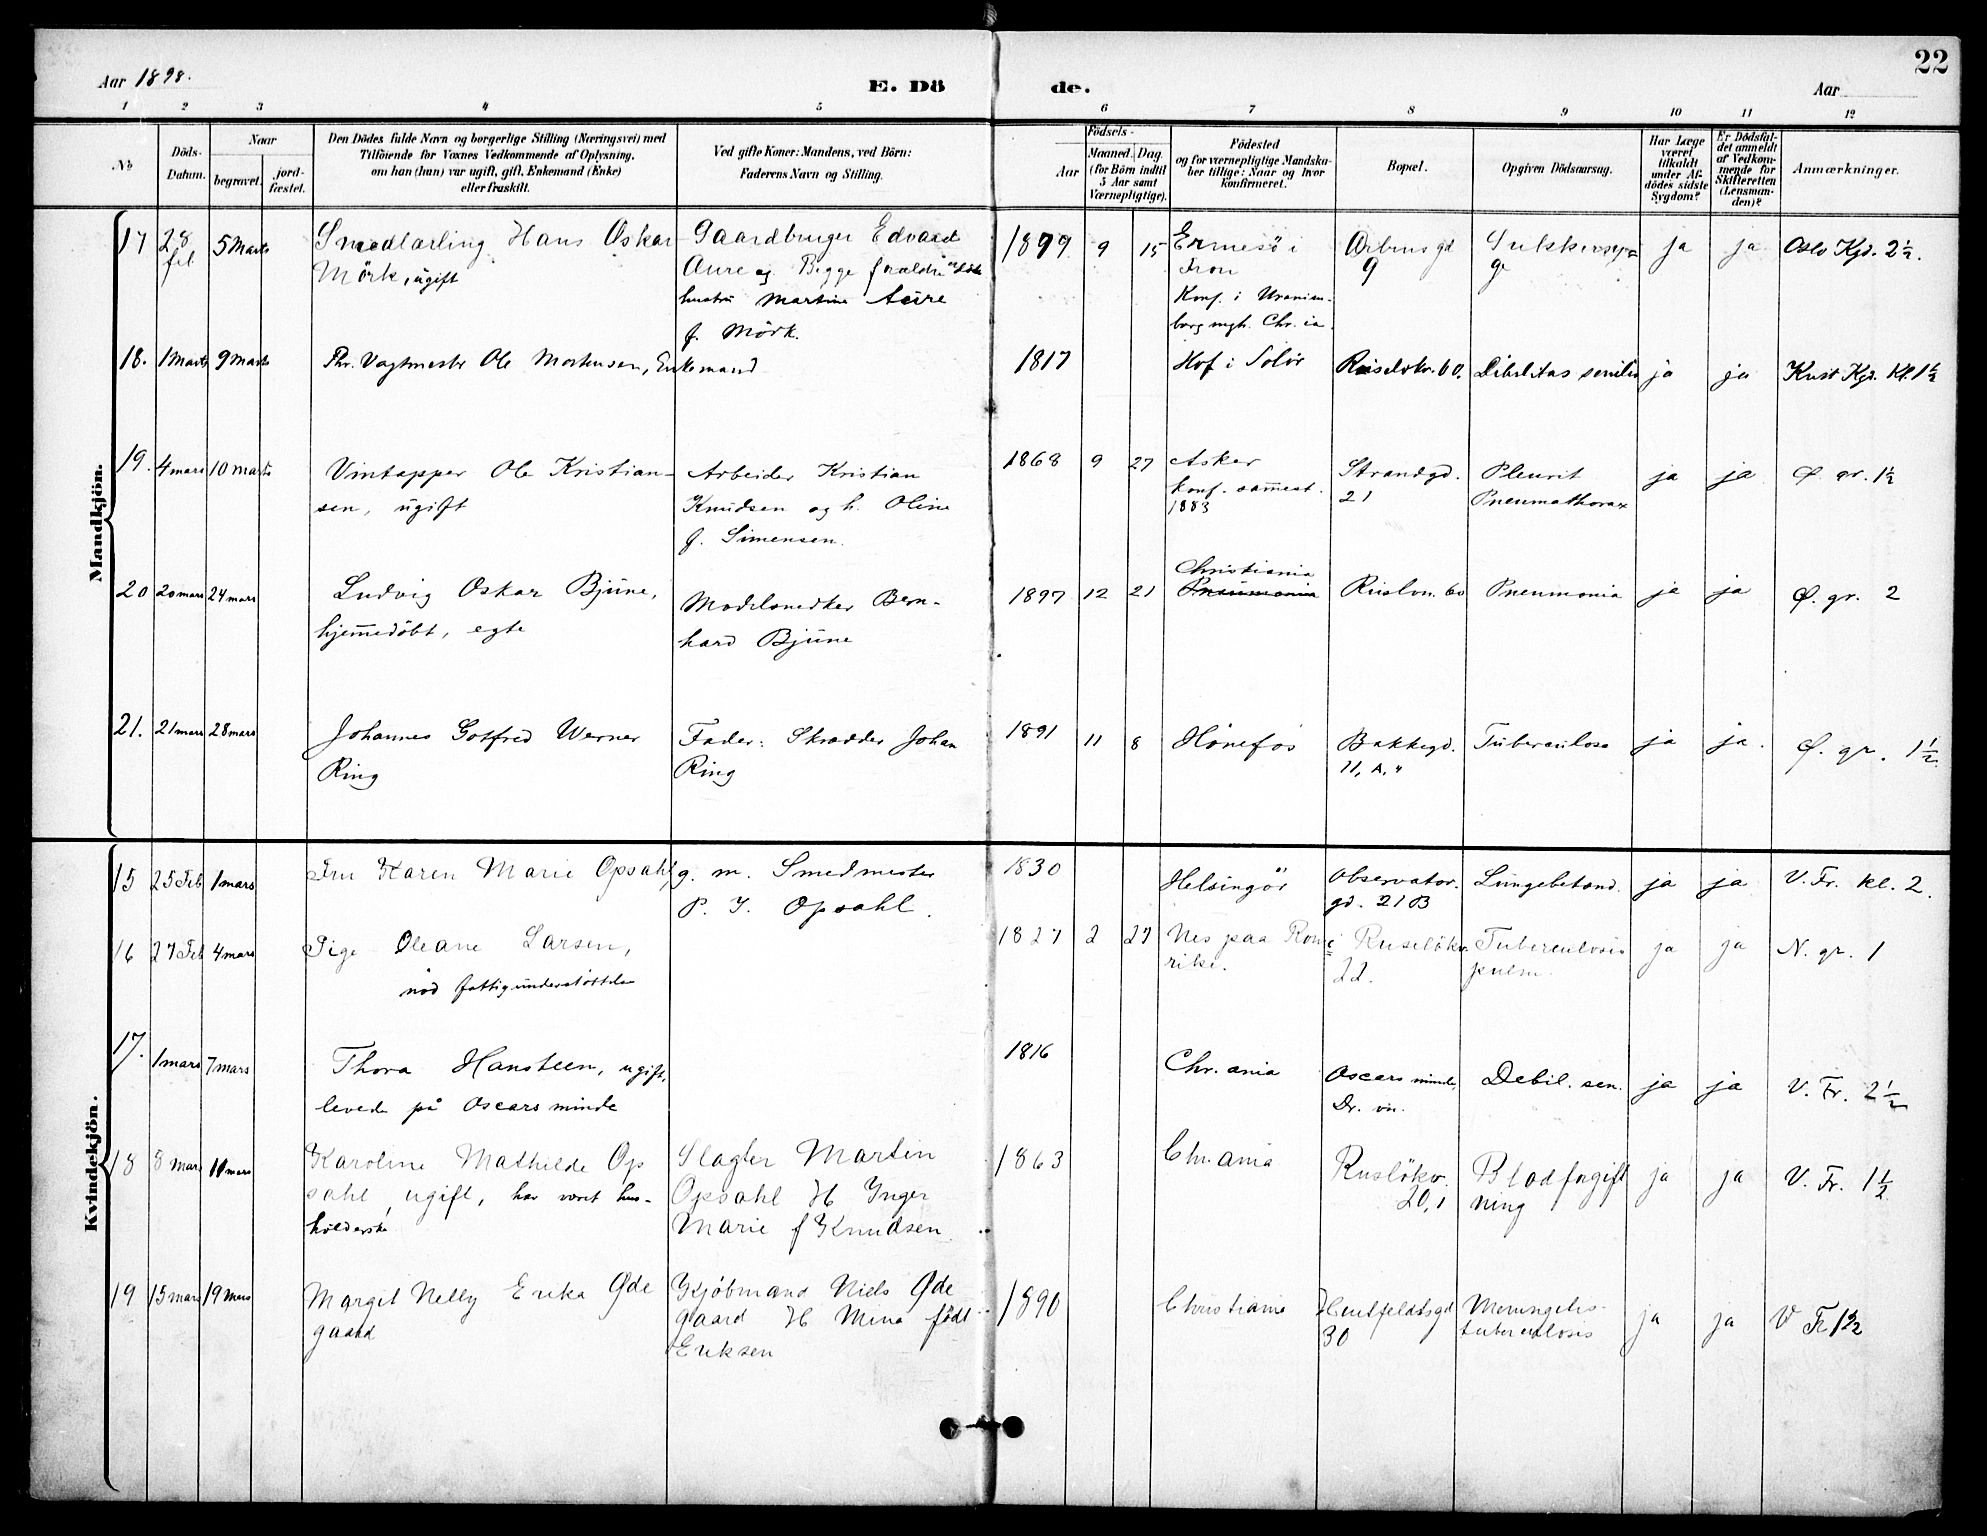 22
Aar 1898.
E. Dö de.
Aar
1 2 3 4 5 6 7 8 9 10 11 12
No
Döds-
Datum.
Naar
begravet.
jord-
fæstet.
Den Dödes fulde Navn og borgerlige Stilling (Næringsvei) med
Tilföiende for Voxnes Vedkommende af Oplysning,
om han (hun) var ugift, gift, Enkemand (Enke)
eller fraskilt.
Ved gifte Koner: Mandens, ved Börn:
Faderens Navn og Stilling.
Födsels-
Aar
Maaned. Dag.
(for Börn indtil
5 Aar samt
Værnepligtige).
Födested
og for værnepligtige Mandska-
ber tillige: Naar og hvor
konfirmeret.
Bopæl.
Opgiven Dödsaarsag.
Har Læge
været
tilkaldt
under Af-
dödes sidste
Sygdom?
Er Dödsfal-
det anmeldt
af Vedkom-
mende for
Skifteretten
(Lensman-
den)?
Anmærkninger.
Mandkjön.
17 28 feb 5 Marts
Smedlærling Hans Oskar
Mörk, ugift
Gaardbruger Edvard
Aure og
hustru Martine Aure
f. Mörk.
1879 9 15
i
Fron
Konf. i Uranien-
borg mgh. Chr.ia.
9
ja ja Oslo Kgd. 2½.
18. 1 Marts 9 Marts
Fhv. Vagtmester Ole Mortensen, Enkemand
1817
Hof i Solör
Ruselökv. 60.
Debilitas senilis
ja ja Krist Kgd. Kl. 1½
19. 4 mars 10 marts
Vintapper Ole Kristian-
sen, ugift
Arbeider Kristian
Knudsen og h. Oline
f. Simensen.
1868 9 27
Asker
konf. sammest.
1883
Strandgd.
21
Pleurit
Pneumathorax
ja ja Ø. gr. 1½
20 20 mars 24 mars
Ludvig Oskar Bjune,
hjemmedöbt, egte
Modelsnedker Bern-
hard Bjune
1897 12 21
Christiania
Pneumonia
Ruslvn. 60
Pneumonia
ja ja Ø. gr. 2
21. 21 mars 28 mars
Johannes Gotfred Werner
Ring
Fader: Skrædder Johan
Ring
1891 11 8
Hönefos
Bakkegd.
11, A, 4
Tuberculose
ja ja. Ø. gr. 1½.
Kvindekjön.
15 25 Feb 1 mars
Fru Karen Marie Opsahl,
g. m. Smedmester
P. J. Opsahl.
1830
Helsingör
Observator.
gd. 21 B
Lungebetænd.
ja ja V. Fr. kl. 2.
16 27 Feb 4 mars
Pige Oleane Larsen,
nöd fattigunderstöttelse
1827 2 27
Nes paa Rome
rike.
Ruselökv.
22.
Tuberculosis
pulm.
ja ja N. gr. 1
17. 1 mars 7 mars
Thora Hansteen, ugift,
levede på Oscars minde
1816
Chr.ania
Oscars minde,
Dr. vn.
Debil. sen.
ja ja V. Fr. 2½
18 8 mars 10 mars
Karoline Mathilde Op
sahl, ugift, har været hus-
holderske
Slagter Martin
Opsahl H Inger
Marie f Knudsen
1863
Chr.ania
Ruslökv.
20,1
Blodforgift
ning
ja ja V. Fr. 1½
19 15 mars 19 mars
Margit Nelly Erika Øde
gaard
Kjöbmand Niels Øde
gaard H Mina födt
Eriksen
1890
Christiania
Huitfeldtsgd
30
Meningitis
tuberculosis
ja ja V Fr 1½